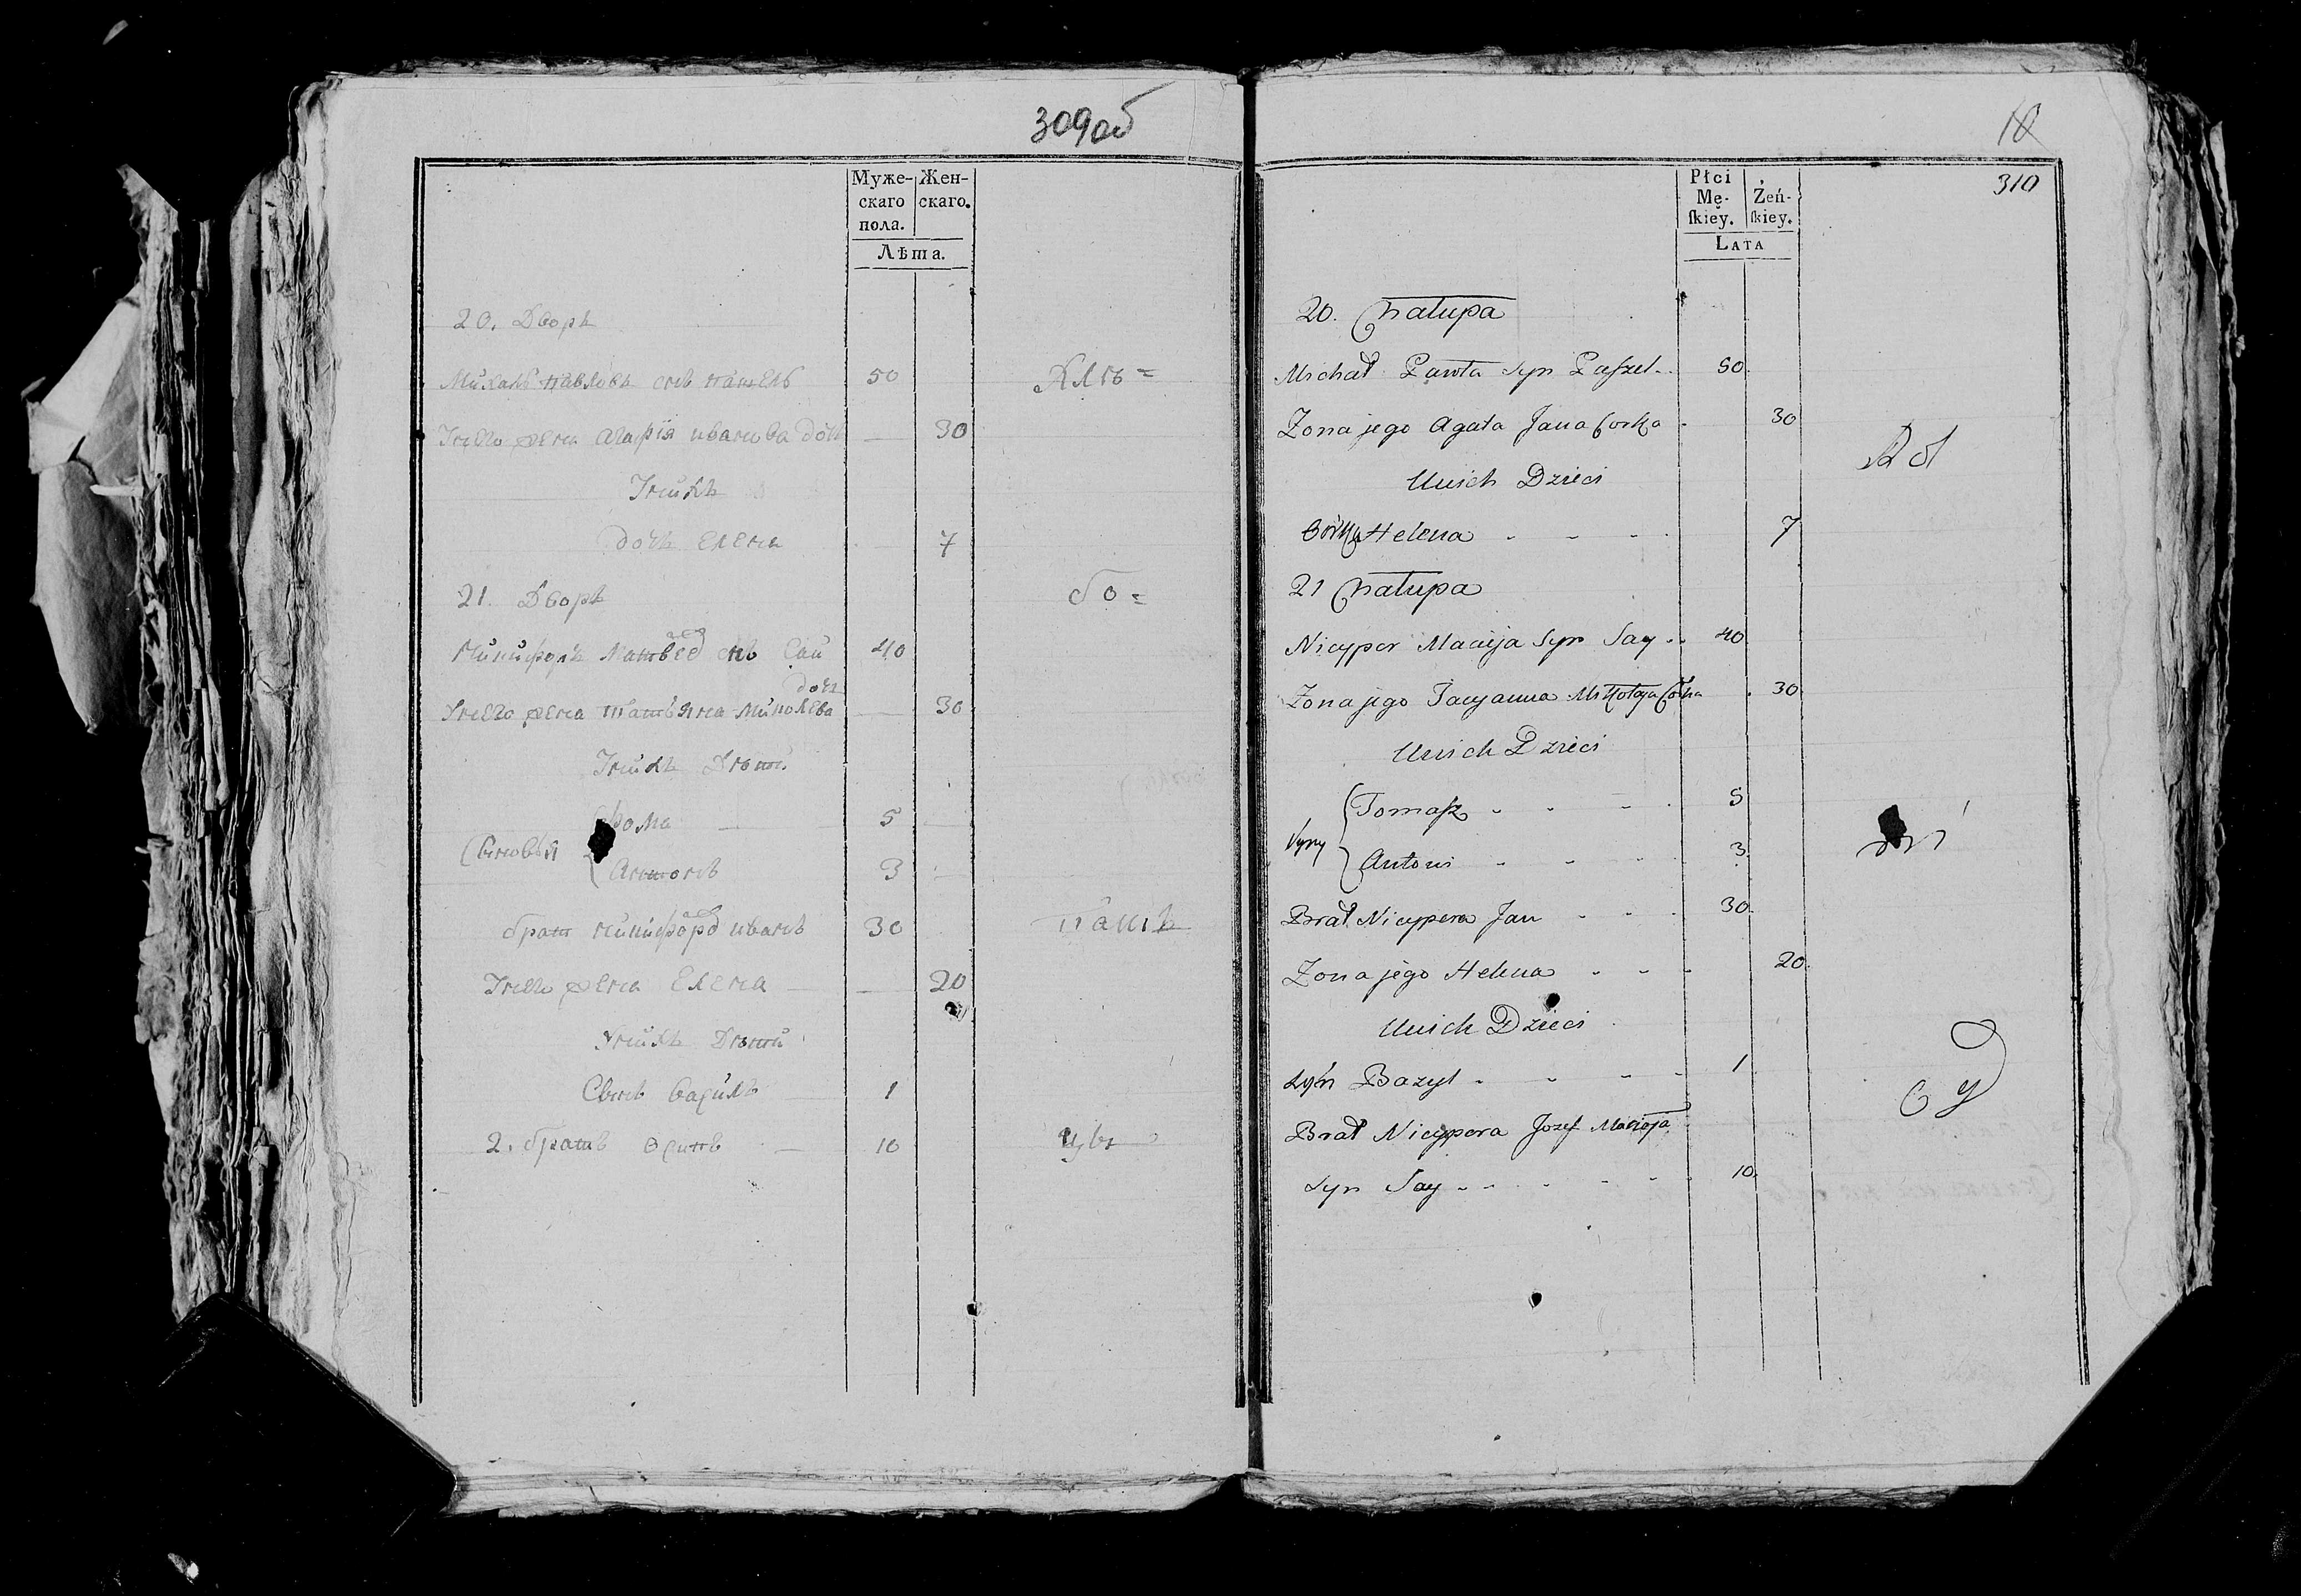 309об
Муже-
скаго
пола.
Жен-
скаго.
Лѣта.
20. Дворъ
Михалъ Павловъ снъ Пашель 50
У него жена Агафія Иванова дочь 30
У нихъ
дочь Елена 7
21. Дворъ
бо=
Никифоръ Матвеев снъ Сай 40
дочь
У него жена Татьяна Миколева 30
У нихъ Дѣти
Фома 5
Сыновья
Антонъ 3
братъ Никифоров Иванъ 30
У него жена Елена 20
У нихъ Дѣти
Сынъ Василь 1
2. братъ Осипъ 10
10
310
Płci
Mę-
ſkiey.
Żeń-
ſkiey.
Lata
20. Chałupa
Michał Pawła Syn Paszel 50
Zona jego Agata Jana Corka 30
U nich Dzieci
Córka Helena 7
21 Chałupa
Nicypor Macieja Syn Say 40
Zona jego Tacyanna Mikołaja Córka 30
U nich Dzieci
Tomasz 5
Syny
Antoni 3
Brat Nicypora Jan 30
Zona jego Helena 20
U nich Dzieci
Syn Bazyl 1
Brat Nicypora Jozef Macieja
Syn Say 10